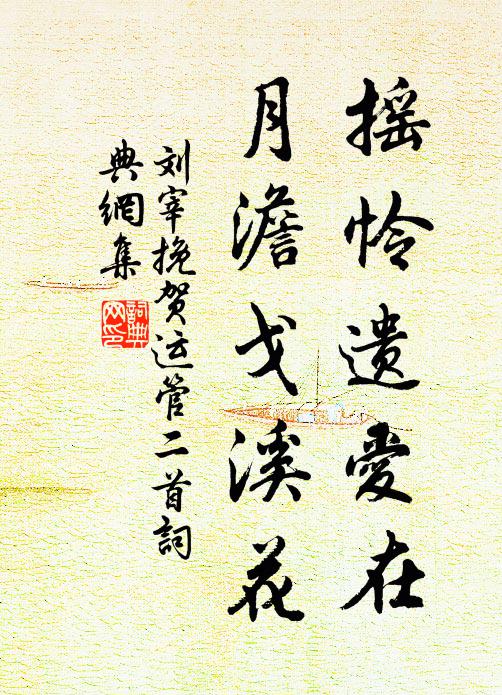 摇怜遗爱在
月澹戈溪花
刘宰挽贺运管二首词
典網集
詞典網印